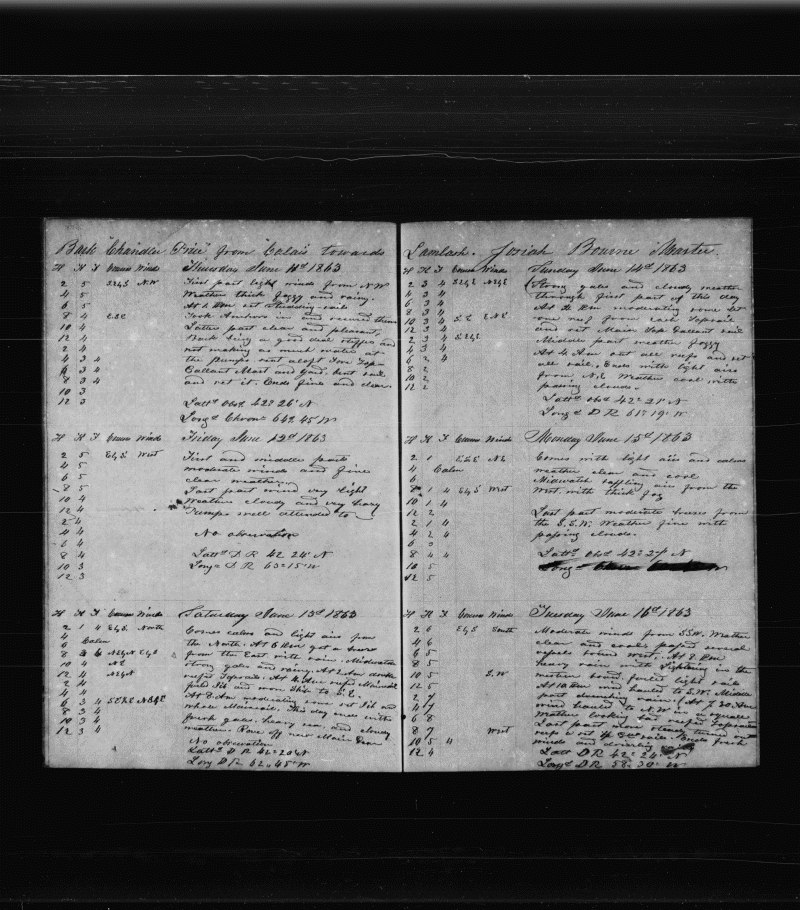 Bark "Chandler Price" from Calais towards
H K F Courses Winds Thursday June 11th 1863
2 5 SE½S N.W First part light winds from N.W
4 5 Weather thick foggy and rainy.
6 5 At 6 Pm set studding sails
8 4 ESE Took Anchors in and secured them
10 4 Latter part clear and pleasant,
12 4 Bark being a good deal stiffer and
2 4 not making as much water at
4 3 4 the pumps sent aloft Fore Top
6 3 4 Gallant Mast and Yard, bent sail
8 3 4 and set it. Ends fine and clear.
10 3
12 3 Lattd Obsd 42° 26' N
Longd Chron 64° 45 W
H K F Courses Winds Friday June 12th 1863
2 5 E½S West First and middle parts
4 5 moderate winds and fine
6 5 clear weather
8 5 Last part wind very light
10 4 Weather cloudy and very heavy
12 4 Pumps well attended to
2 4
4 4 No observation
6 4
8 4 Lattd D R 42 24' N
10 3 Longd D R 63° 15' W
12 3
H K F Courses Winds Saturday June 13th 1863
2 1 4 E½S North Comes calms and light airs from
4 Calm the North. At 6 Pm got a breeze
6 from the East with rain. Midwatch
8 3 4 strong gales and rainy. At 2 Am double
10 4 NE reefed Topsails. At 4 Am reefed Mainsail
12 4 Jib and wore Ship to S.E.
2 4 At 8 Am moderating some set Jib and
4 4 whole Mainsail. This day ends with
6 3 4 fresh gales, heavy sea and cloudy
8 3 4 weather. Gave off new Main Gear
10 3 4 No observation
12 3 4 Lattd D R 42° 20' N
Long D R 62° 45' W
Lamlash. Josiah Bourne Master.
H K F Courses Winds Sunday June 14th 1863
2 3 4 Strong gales and cloudy weather
4 3 4 through first part of this day
6 3 4 At Pm moderating some let
8 3 4 one reef from each Topsail
10 3 4 S.E E.N.E and set Main Top Gallant sail
12 3 4 Middle part weather foggy
2 3 4 At 4 Am out all reefs and set
4 3 4 all sail. Ends with light airs
6 2 4 from N.E Weather cool with
8 2 passing clouds.
10 2 Lattd Obsd 42° 21' N
12 2 Longd D R 61° 19' W
H K F Courses Winds Monday June 15th 1863
2 1 ESE NE Comes with light airs and calms
4 Calm weather clear and cool
6 Midwatch baffling airs from the
8 1 4 E½S West West with thick fog
10 1 4
12 2 Last part moderate breezes from
2 1 4 the S.S.W. Weather fine with
4 2 4 passing clouds.
6 3
8 4 4 Lattd Obsd 42° 27' N
10 5
12 5
H K F Courses Winds Tuesday June 16th 1863
2 6 E½S South Moderate winds from SSW. Weather
4 6 clear and cool, passed several
6 5 vessels bound west. At 8 Pm
8 5 heavy rain with lightning in the
10 5 S.W. western board, furled light sails
12 5 At 10 Pm wind hauled to S.W. Middle
2 7 part rain. At 7.30 Am
4 7 wind hauled to N.W. in a squall
6 8 weather looking bad reefed Topsails
8 7 West Last part more clear turned out
10 5 4 reefs & set sail. Ends fresh
12 4 winds and
Lattd D R 42° 24' N
Longd D R 58° 30' W